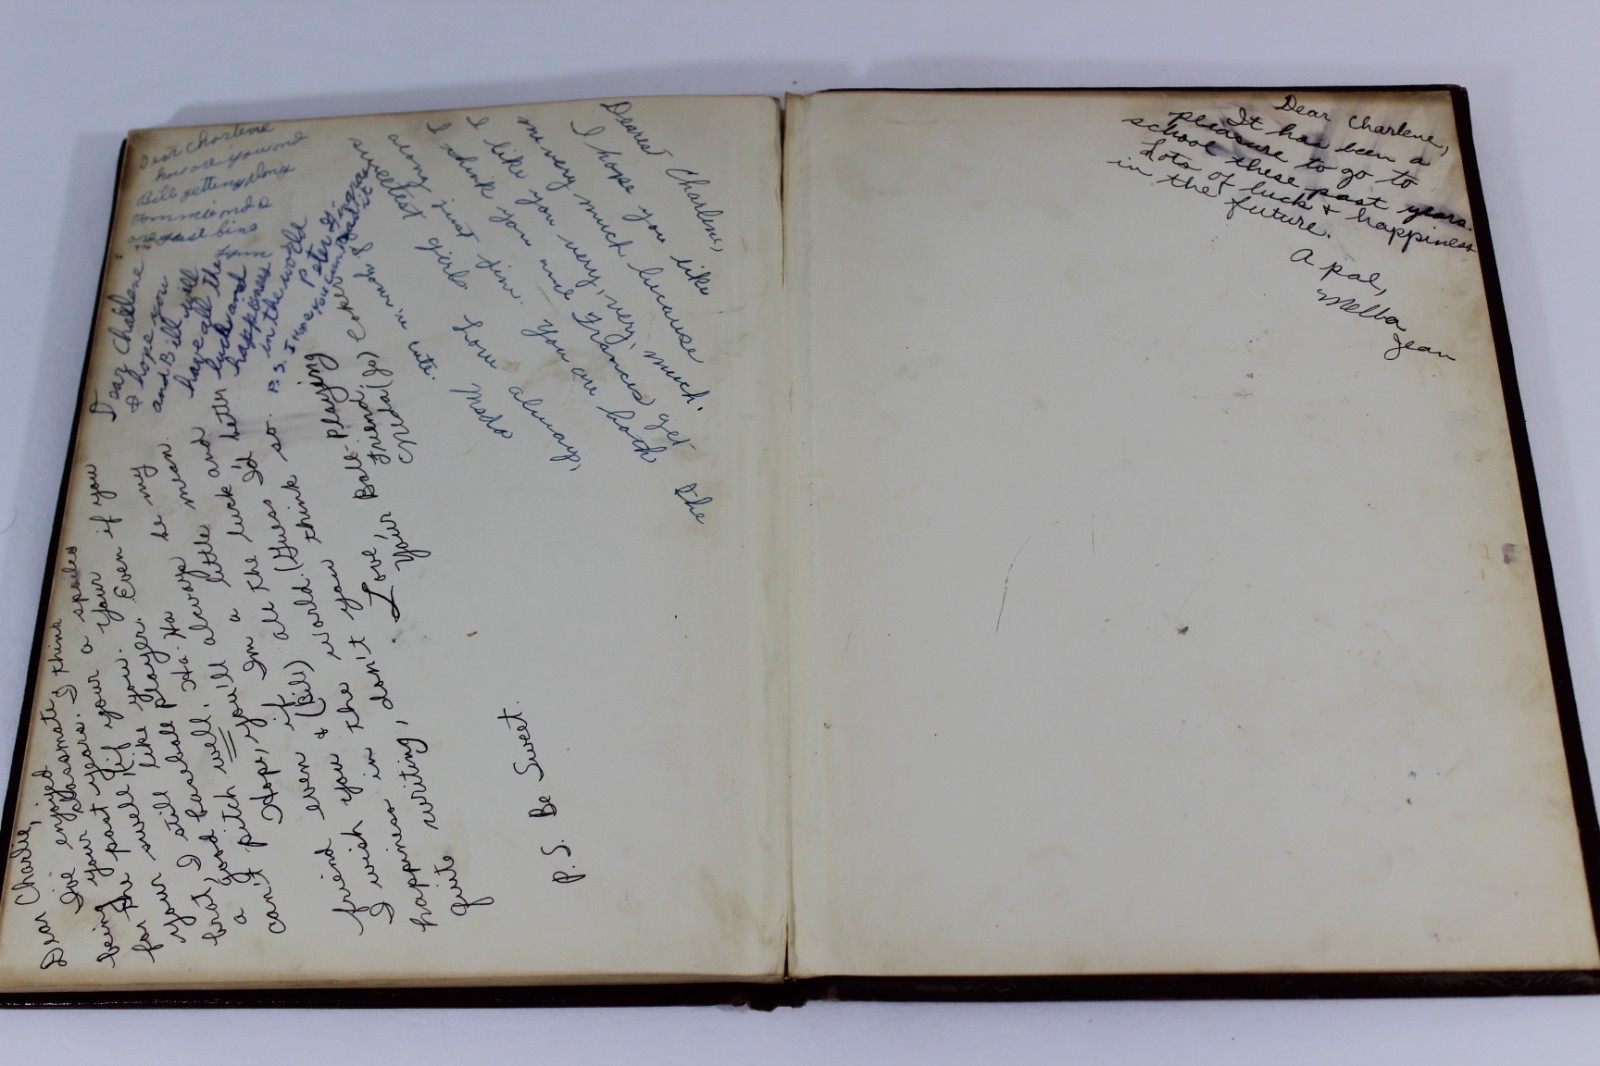 Dear Charlene
how are you and
Bill getting along
Tommie and I
are just fine
Dear Charlene
I hope you
and Bill will
have all the
luck and
happeness
in the world
Peter
P.S. I hope you can read it
Dearest Charlene,
I hope you like
me very much because
I like you very, very, much.
I think you and Frances get
along just fine. You are both the
sweetest girls. Love always,
I think your're cute. Mada
Dear Charlie,
I've enjoyed
being your classmate
for the past years. I think
your swell, if your a spoiled
brat, I still like you. Even if you
a good baseball player. Be my
can't pitch well. Ha-Ha always
Hope, you'll a little mean
friend even if I'm
I wish you & (Bill) all the luck and
happiness in the world. (Guess I'd better
quite writing, don't you think so.
Love,
Your Ball-Playing
Friend,
Neda (Jo)
P.S. Be Sweet.
Dear Charlene,
It has been a
pleasure to go to
school these past years.
Lots of luck & happiness
in the future.
A pal,
Melba
Jean